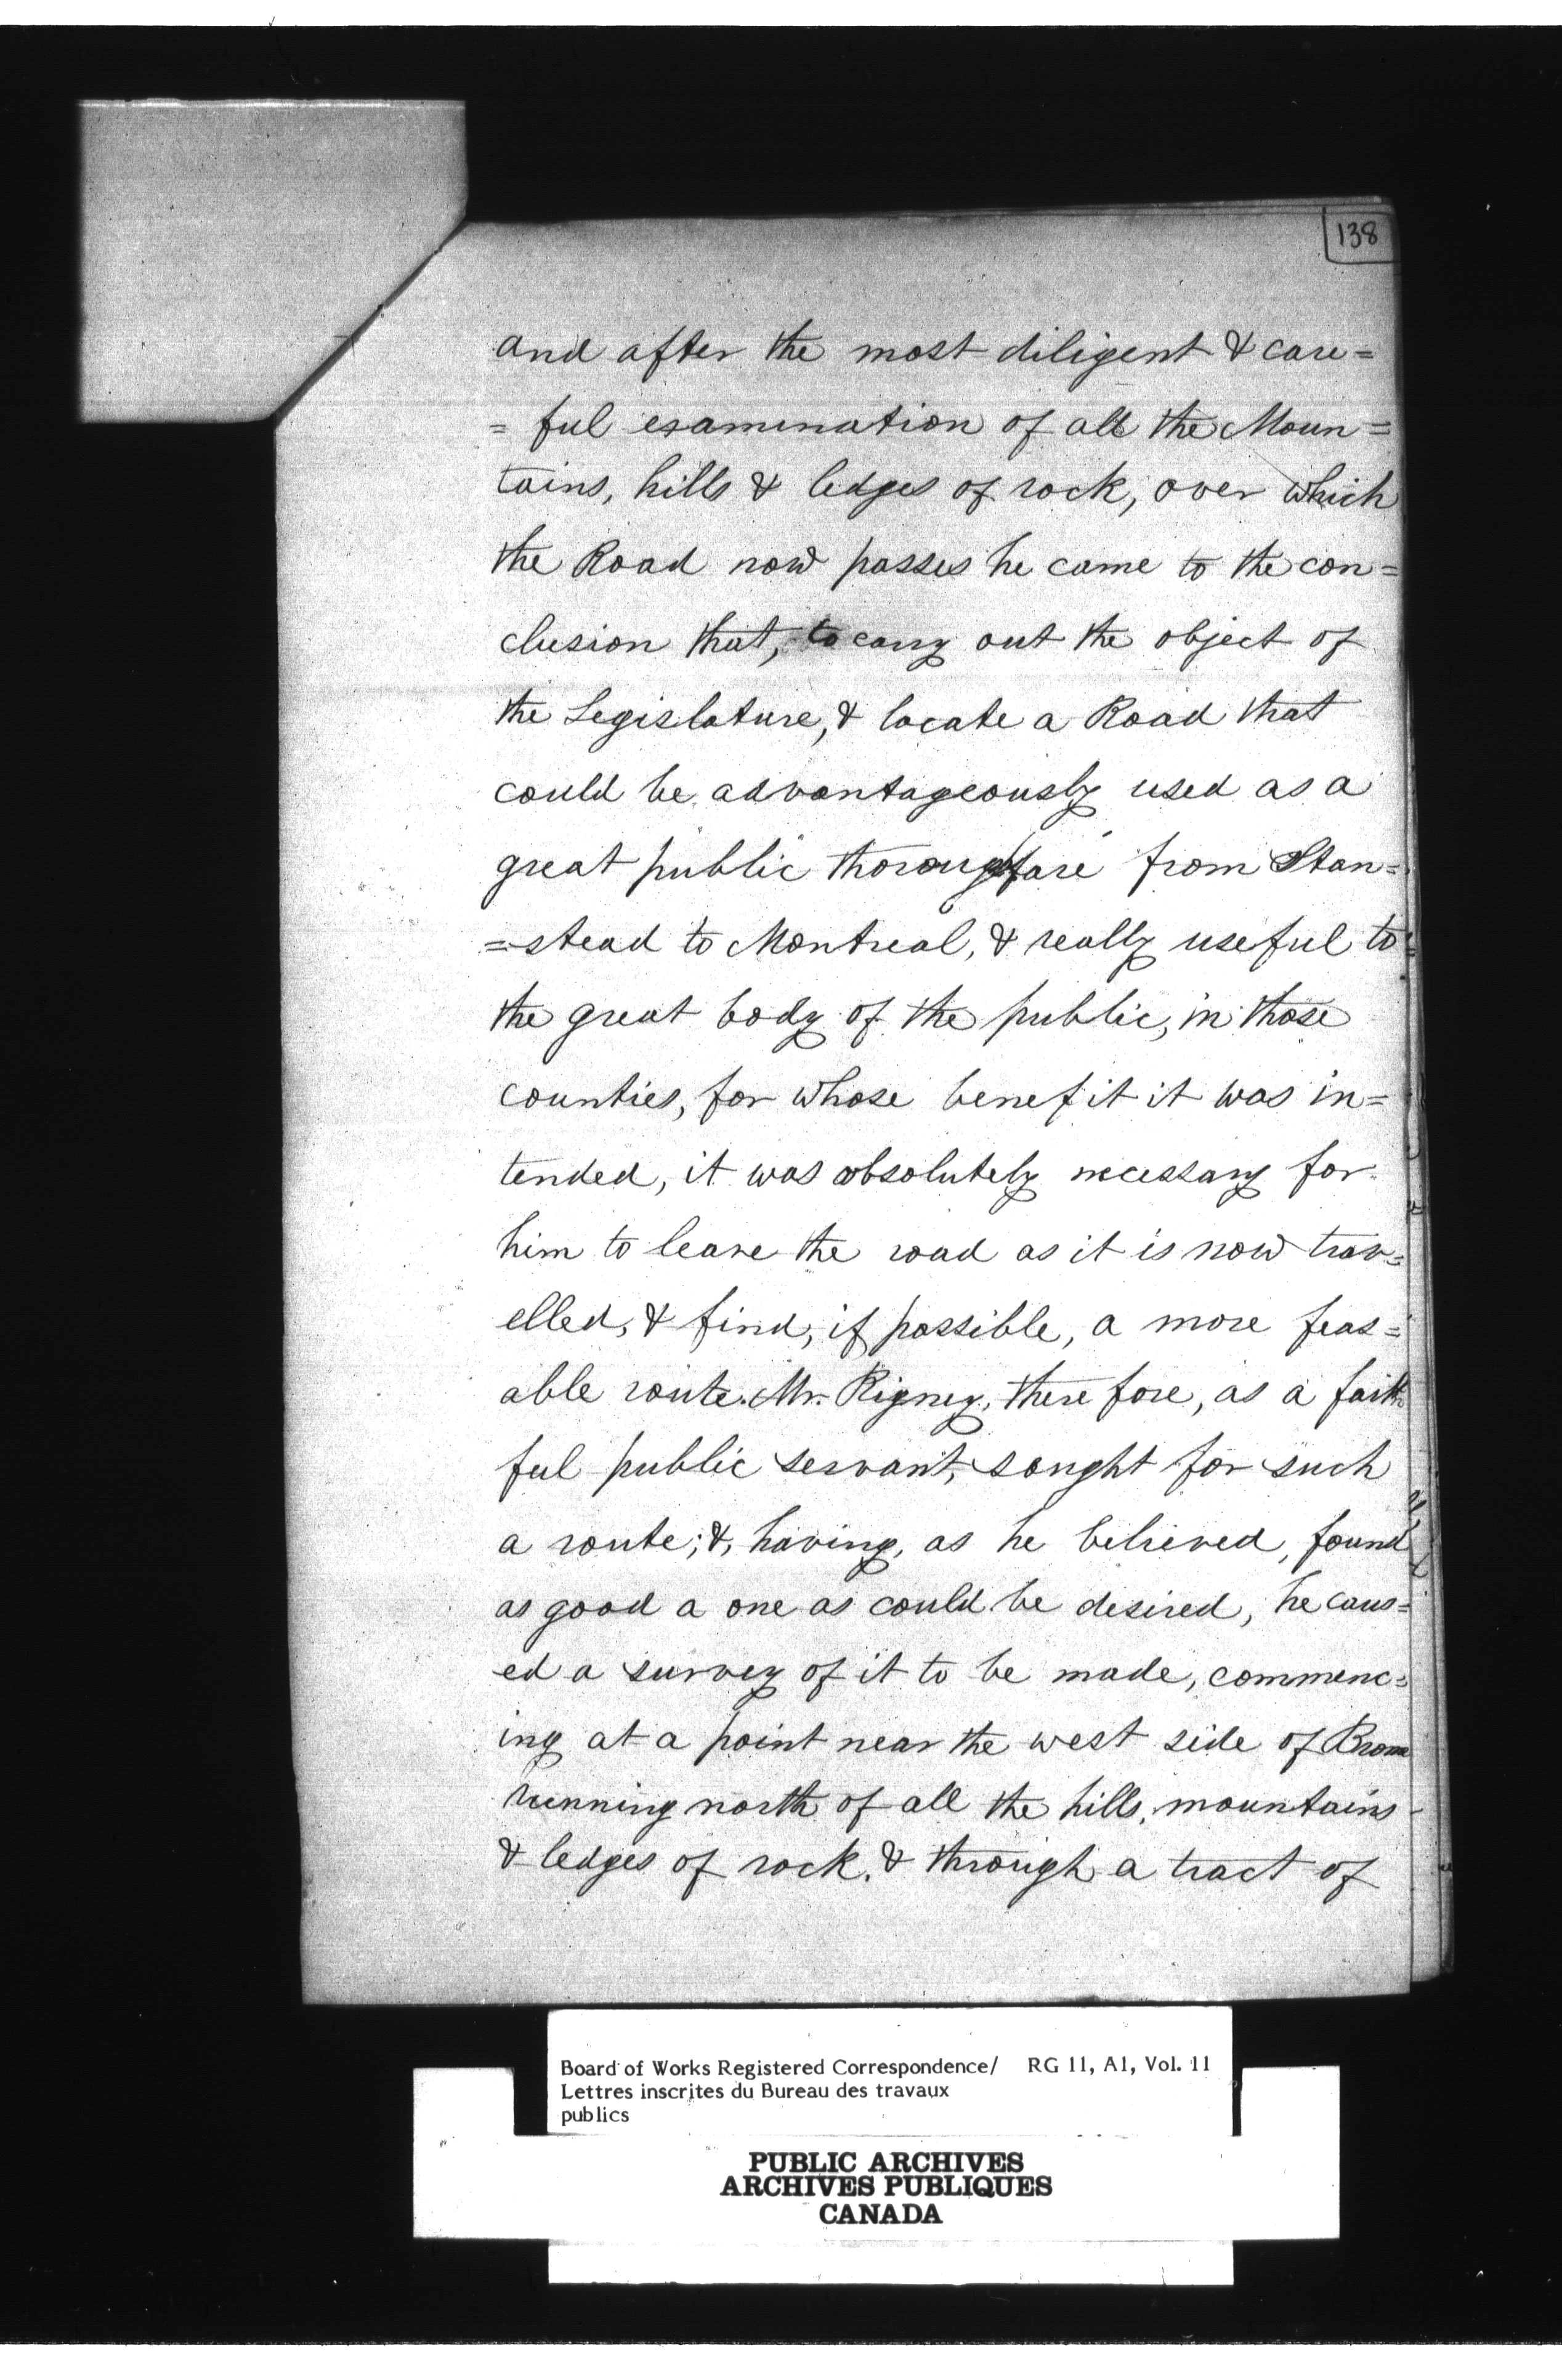 138
and after the most diligent & care=
= ful examination of all the Moun=
tains, hills & ledges of rock, over which
the Road now passes he came to the con=
clusion that, to carry out the object of
the Legislature, & locate a Road that
could be advantageously used as a
great public thoroughfare from Stan=
=stead to Montreal, & really useful to
the great body of the public, in those
counties, for whose benefit it was in=
tended, it was absolutely necessary for
him to leave the road as it is now trav=
elled, & find, if possible, a more feas=
able route. Mr. Rigney, therefore, as a faith
ful public servant, sought for such
a route; &, having, as he believed, found
as good a one as could be desired, he caus=
ed a survey of it to be made, commenc=
ing at a point near the west side of Brome
running north of all the hills, mountains
& ledges of rock, & through a tract of
Board of Works Registered Correspondence/ RG 11, A1, Vol. 11
Lettres inscrites du Bureau des travaux
publics
PUBLIC ARCHIVES
ARCHIVES PUBLIQUES
CANADA